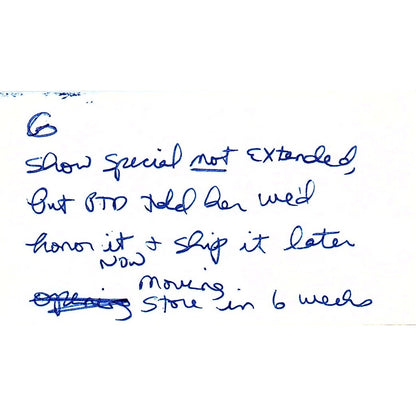 6
Show special not extended,
but BTD told her we'd
honor it + ship it later
NOW moving
opening store in 6 weeks